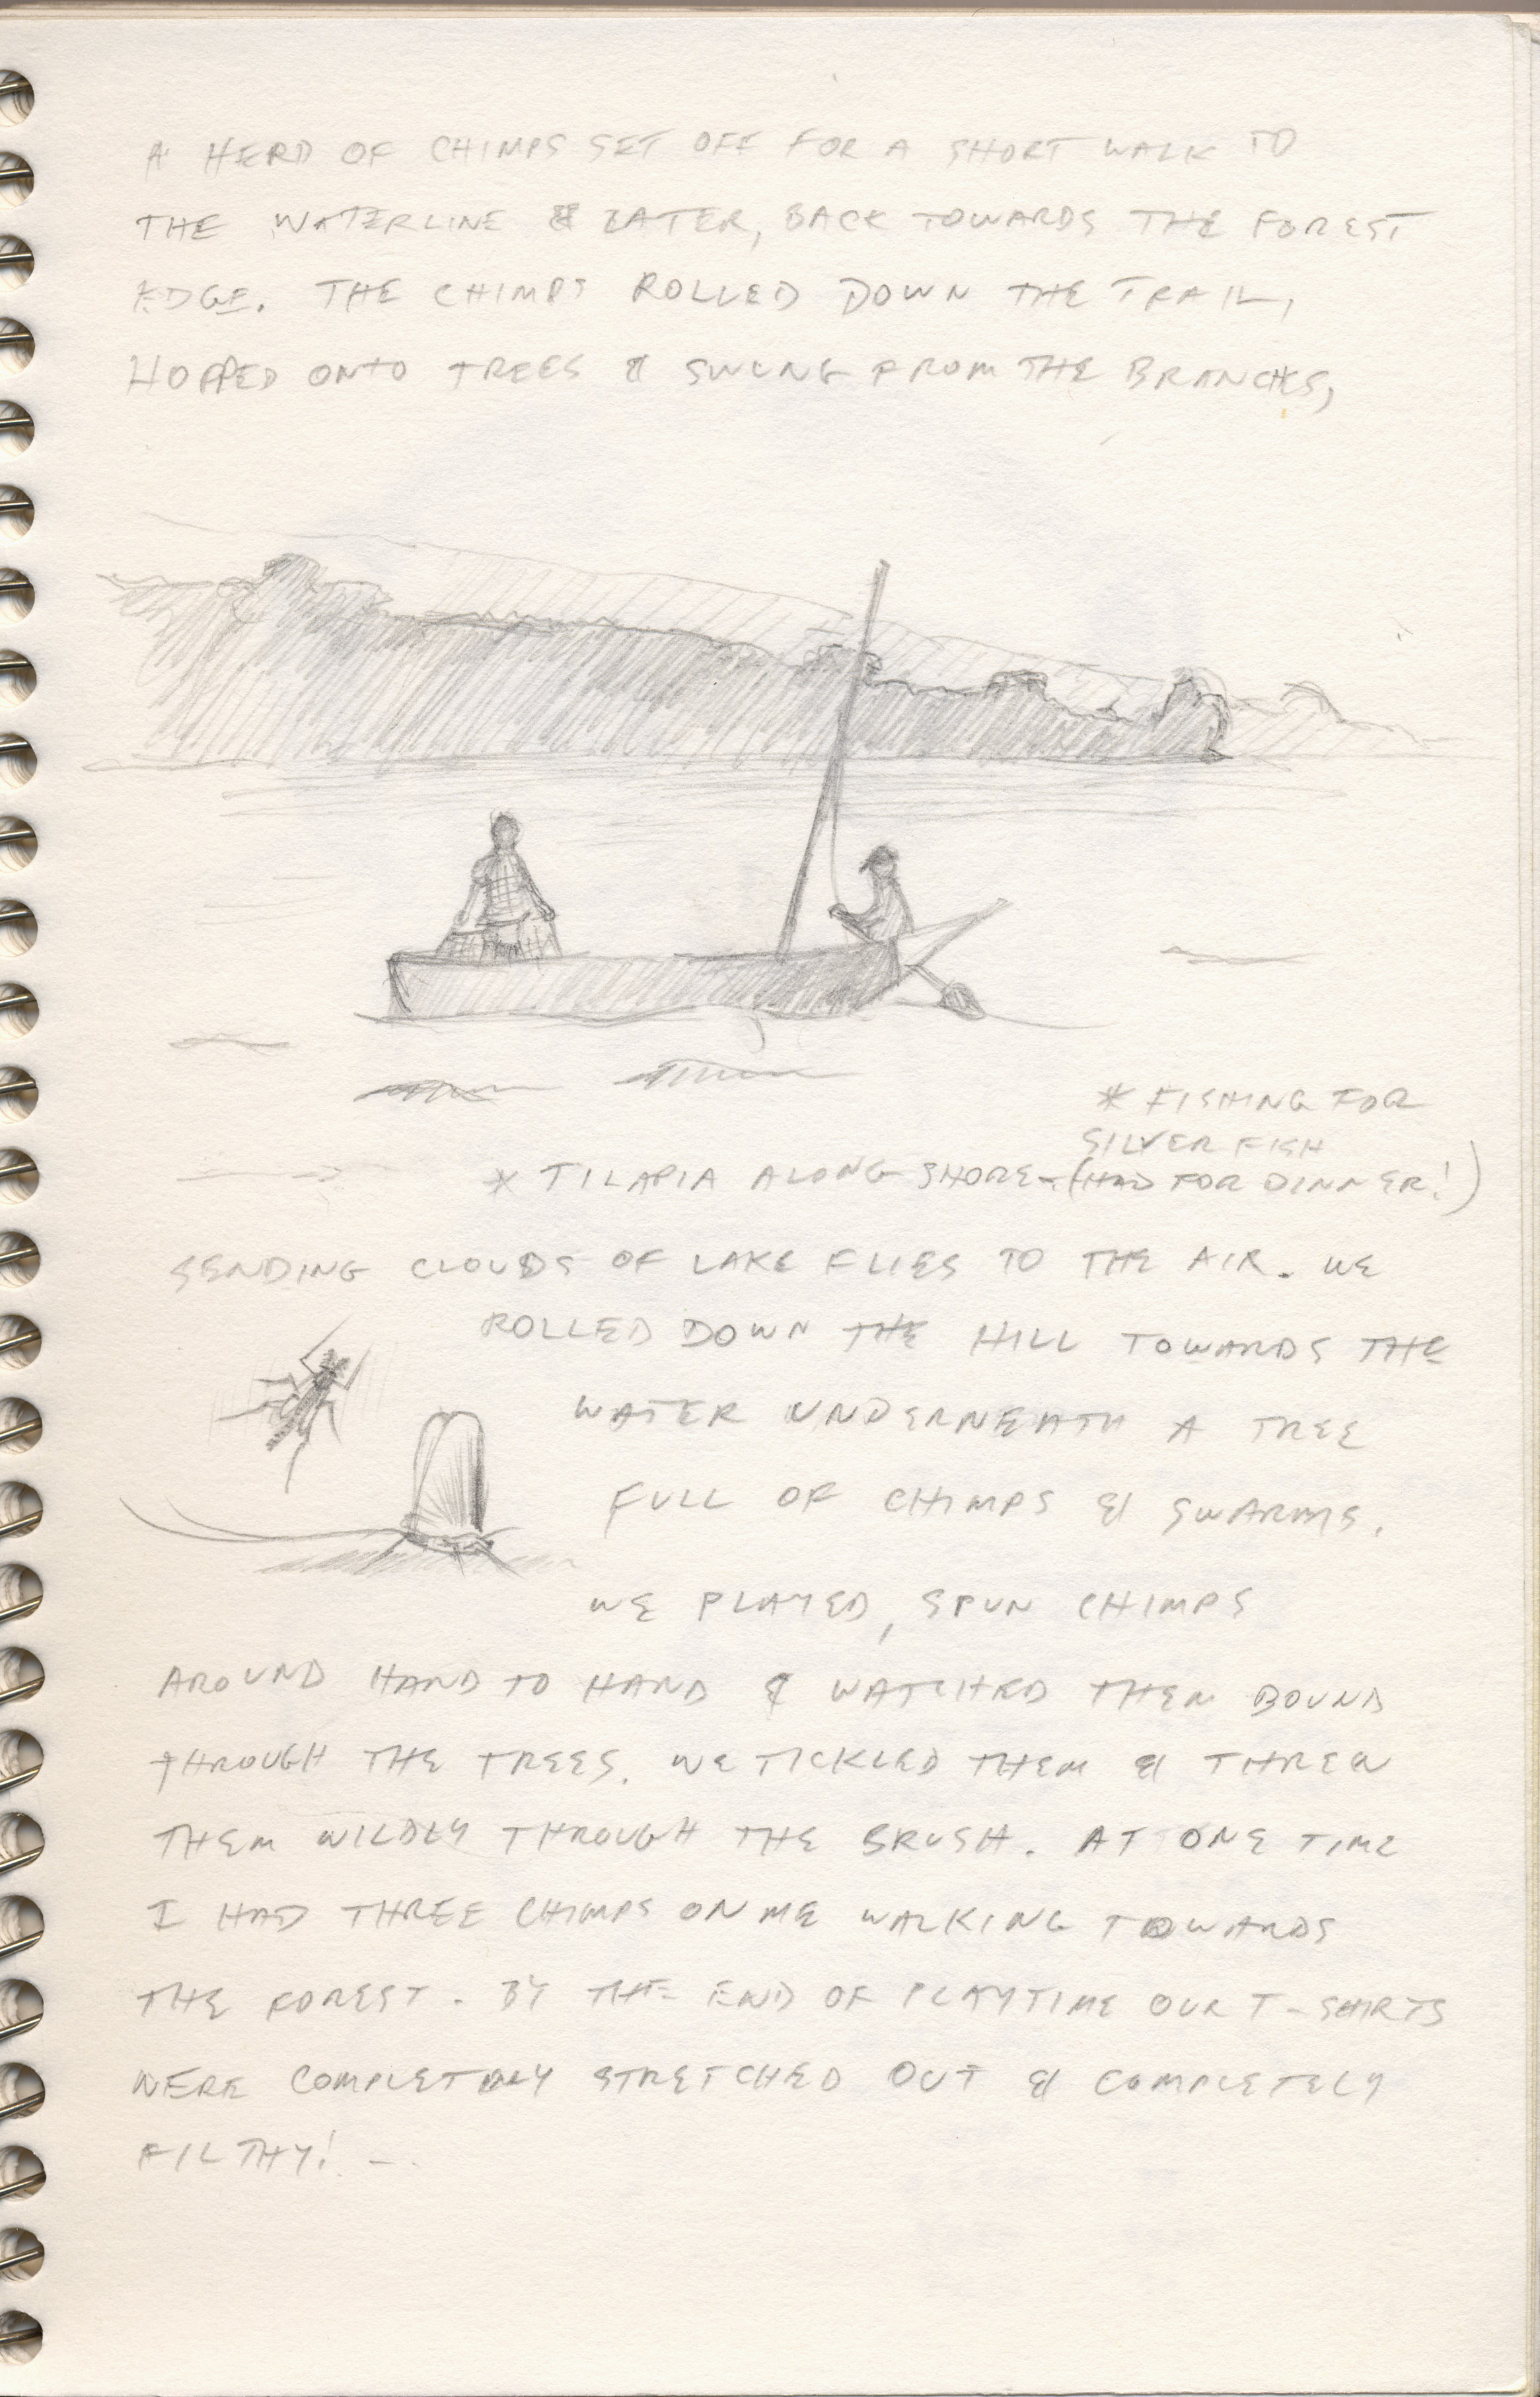 A HERD OF CHIMPS SET OFF FOR A SHORT WALK TO
THE WATERLINE & LATER, BACK TOWARDS THE FOREST
EDGE. THE CHIMPS ROLLED DOWN THE TRAIL,
HOPPED ONTO TREES & SWUNG FROM THE BRANCHS,
* FISHING FOR
SILVER FISH
* TILAPIA ALONG SHORE - (HAD FOR DINNER!)
SENDING CLOUDS OF LAKE FLIES TO THE AIR. WE
ROLLED DOWN THE HILL TOWARDS THE
WATER UNDERNEATH A TREE
FULL OF CHIMPS & SWARMS.
WE PLAYED, SPUN CHIMPS
AROUND HAND TO HAND & WATCHED THEM BOUND
THROUGH THE TREES. WE TICKLED THEM & THREW
THEM WILDLY THROUGH THE BRUSH. AT ONE TIME
I HAD THREE CHIMPS ON ME WALKING TOWARDS
THE FOREST. BY THE END OF PLAYTIME OUR T-SHIRTS
WERE COMPLETELY STRETCHED OUT & COMPLETELY
FILTHY! -.